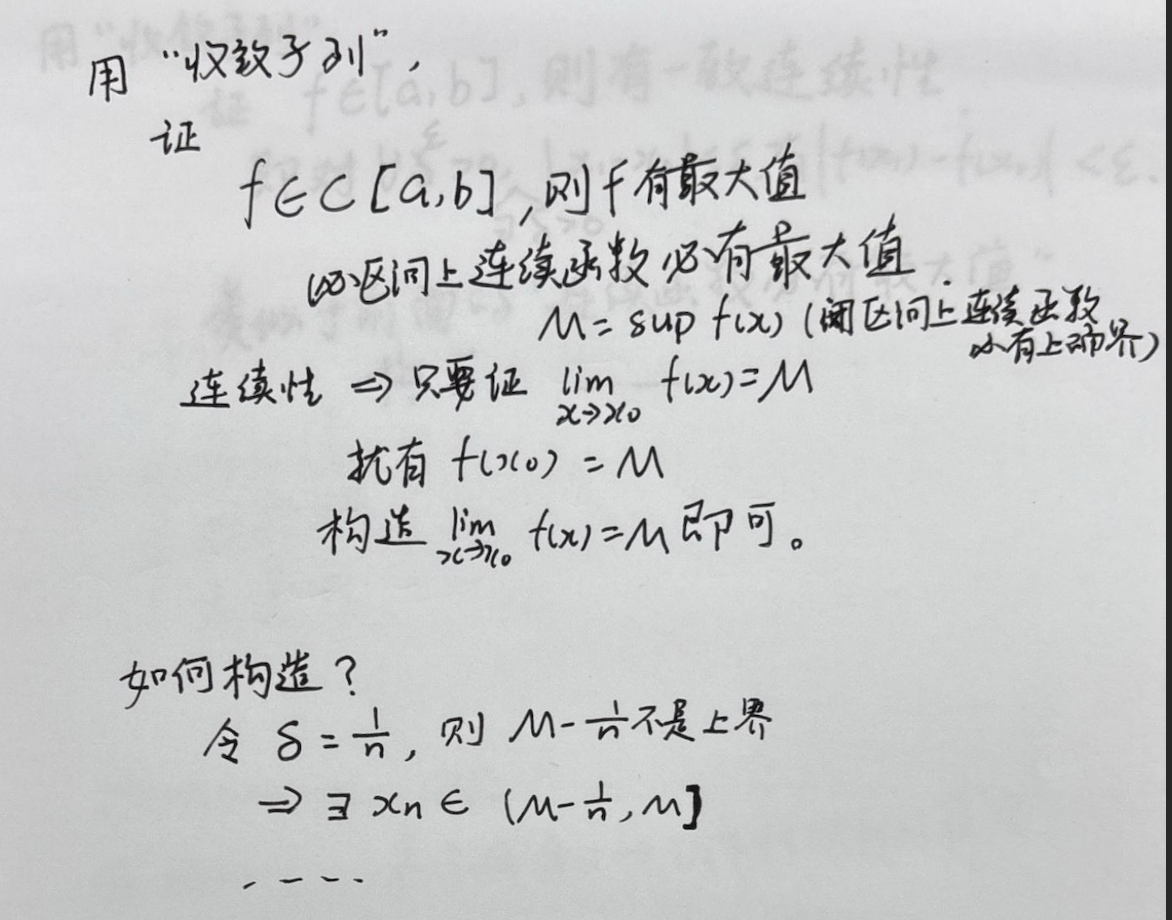 用“收敛子列”,
证
f∈C[a,b],则f有最大值
区间上连续函数必有最大值
M=sup f(x)(闭区间上连续函数
必有上确界)
连续性 ⇒ 只要证 lim x→x0 f(x)=M
就有 f(x0)=M
构造 lim x→x0 f(x)=M即可。
如何构造?
令 δ=1/n, 则 M-1/n不是上界
⇒ ∃ xn ∈ (M-1/n, M]
....